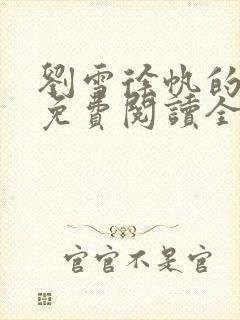 劉雪徐帆的
免費閱讀全
官官不是官